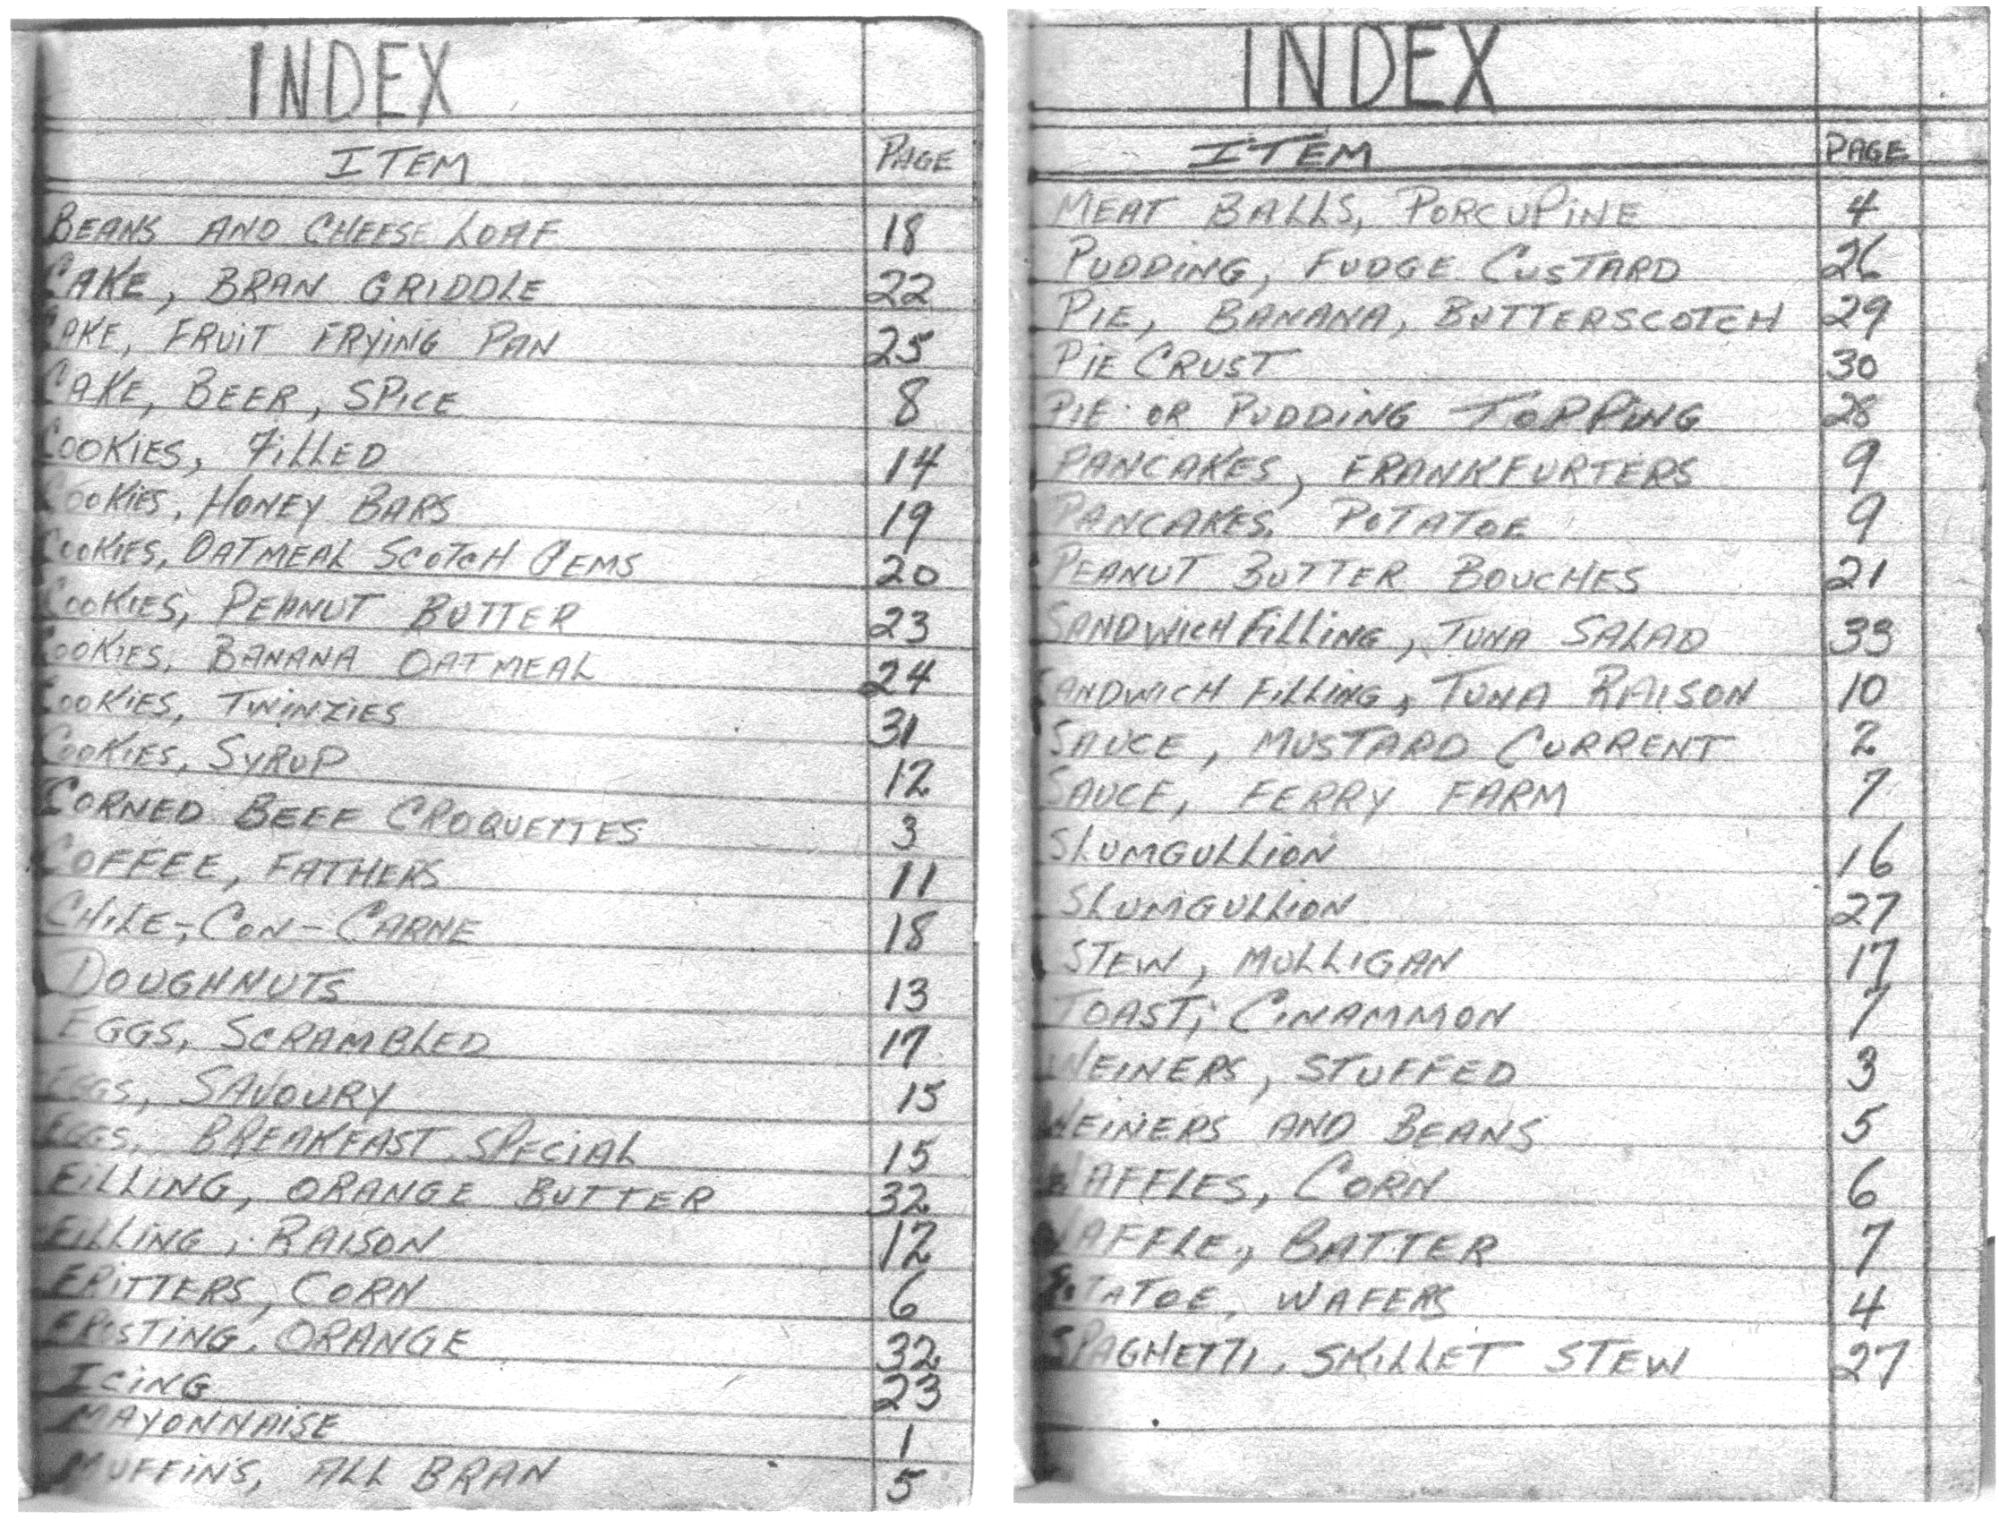 INDEX
ITEM PAGE
BEANS AND CHEESE LOAF 18
CAKE, BRAN GRIDDLE 22
CAKE, FRUIT FRYING PAN 25
CAKE, BEER, SPICE 8
COOKIES, FILLED 14
COOKIES, HONEY BARS 19
COOKIES, OATMEAL SCOTCH GEMS 20
COOKIES, PEANUT BUTTER 23
COOKIES, BANANA OATMEAL 24
COOKIES, TWINZIES 31
COOKIES, SYRUP 12
CORNED BEEF CROQUETTES 3
COFFEE, FATHERS 11
CHILE-CON-CARNE 18
DOUGHNUTS 13
EGGS, SCRAMBLED 17
EGGS, SAVOURY 15
EGGS, BREAKFAST SPECIAL 15
FILLING, ORANGE BUTTER 32
FILLING, RAISON 12
FRITTERS, CORN 6
FROSTING, ORANGE 32
ICING 23
MAYONNAISE 1
MUFFINS, ALL BRAN 5
INDEX
ITEM PAGE
MEAT BALLS, PORCUPINE 4
PUDDING, FUDGE CUSTARD 26
PIE, BANANA, BUTTERSCOTCH 29
PIE CRUST 30
PIE OR PUDDING TOPPING 28
PANCAKES, FRANKFURTERS 9
PANCAKES, POTATOE 9
PEANUT BUTTER BOUCHES 21
SANDWICH FILLING, TUNA SALAD 33
SANDWICH FILLING, TUNA RAISON 10
SAUCE, MUSTARD CURRENT 2
SAUCE, FERRY FARM 7
SLUMGULLION 16
SLUMGULLION 27
STEW, MULLIGAN 17
TOAST, CINAMMON 7
WEINERS, STUFFED 3
WEINERS AND BEANS 5
WAFFLES, CORN 6
WAFFLE, BATTER 7
POTATOE, WAFERS 4
SPAGHETTI, SKILLET STEW 27